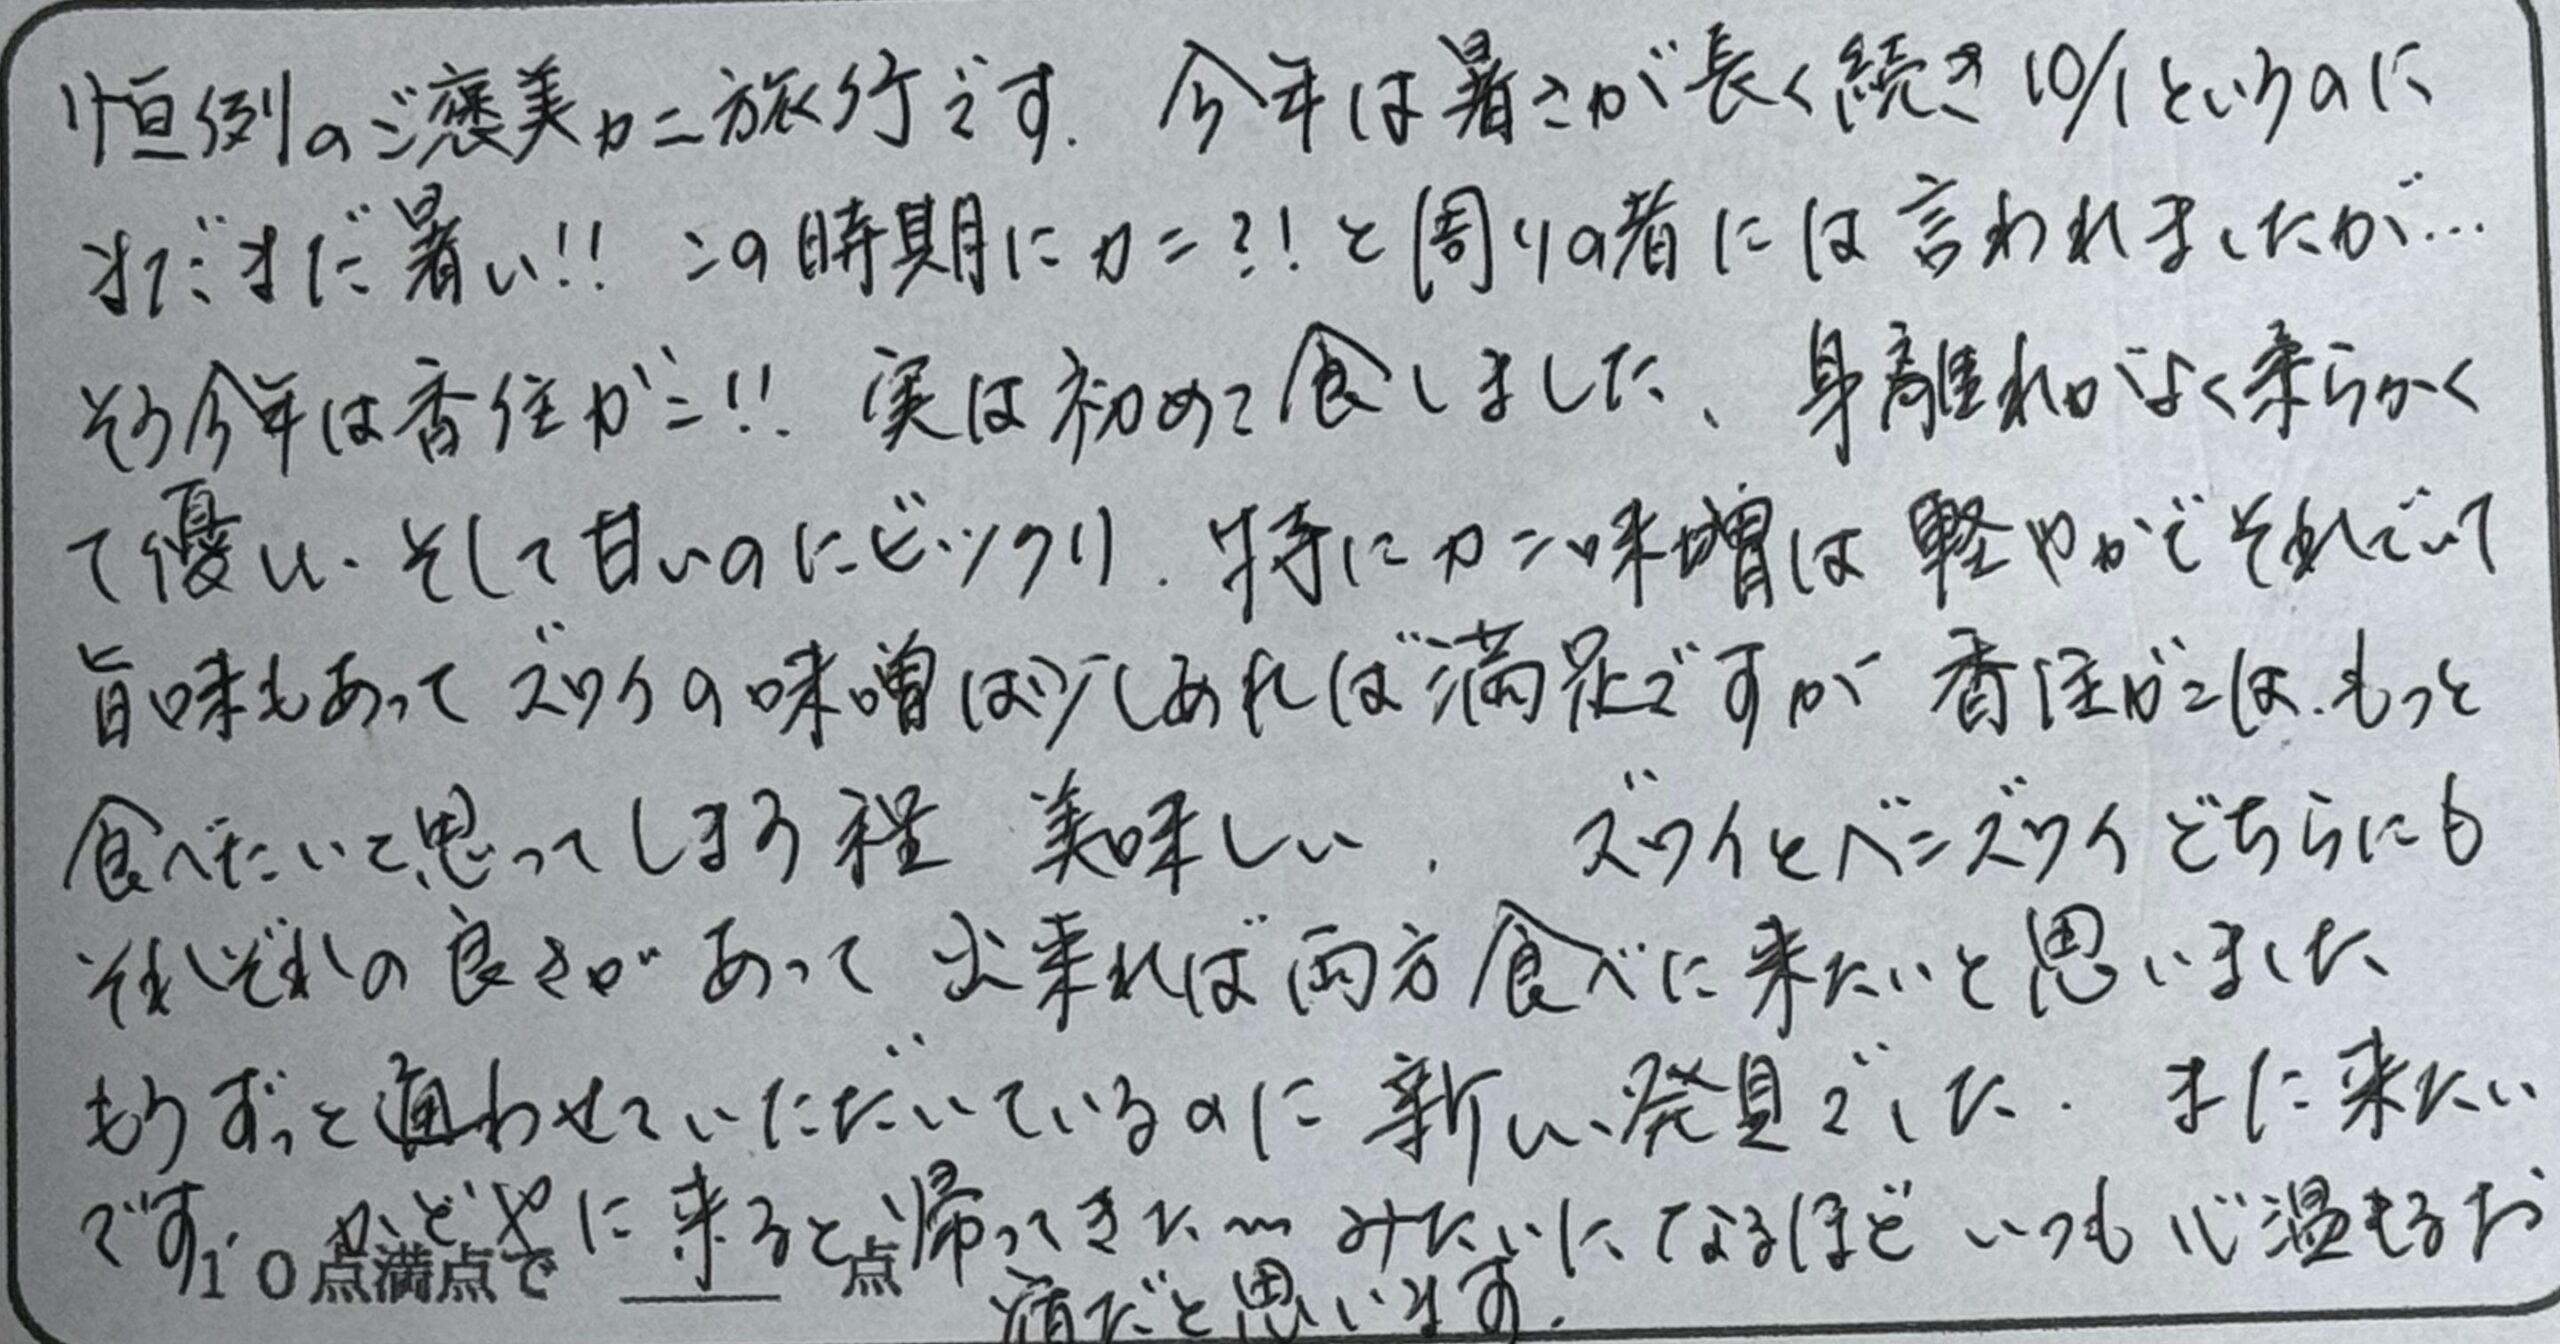 恒例のご褒美カニ旅行です. 今年は暑さが長く続き10/1というのに
まだまだ暑い!! この時期にカニ?!と周りの者には言われましたが…
そう今年は香住ガニ!! 実は初めて食しました、身離れがよく柔らかく
て優しい.そして甘いのにビックリ. 特にカニ味噌は軽やかでそれでいて
旨味もあってズワイの味噌は少しあれば満足ですが香住ガニは.もっと
食べたいと思ってしまう程 美味しい. ズワイとベニズワイどちらにも
それぞれの良さがあって出来れば両方食べに来たいと思いました
もうずっと通わせていただいているのに新しい発見でした. また来たい
です. かどやに来ると帰ってきた〜みたいになるほどいつも心温まるお
宿だと思います.
10点満点で 点